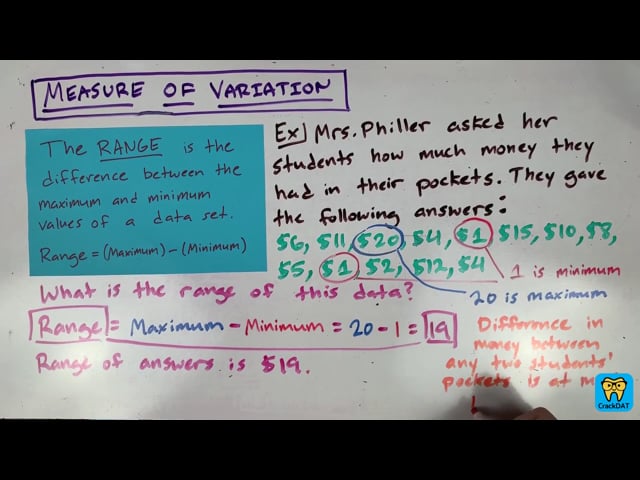 MEASURE OF VARIATION
The RANGE is the
difference between the
maximum and minimum
values of a data set.
Range = (Maximum) - (Minimum)
Ex) Mrs. Philler asked her
students how much money they
had in their pockets. They gave
the following answers:
$6, $11, $20, $4, $1, $15, $10, $8,
$5, $1, $2, $12, $4
1 is minimum
20 is maximum
What is the range of this data?
Range = Maximum - Minimum = 20 - 1 = 19
Range of answers is $19.
Difference in
money between
any two students'
pockets is at
CrackDAT